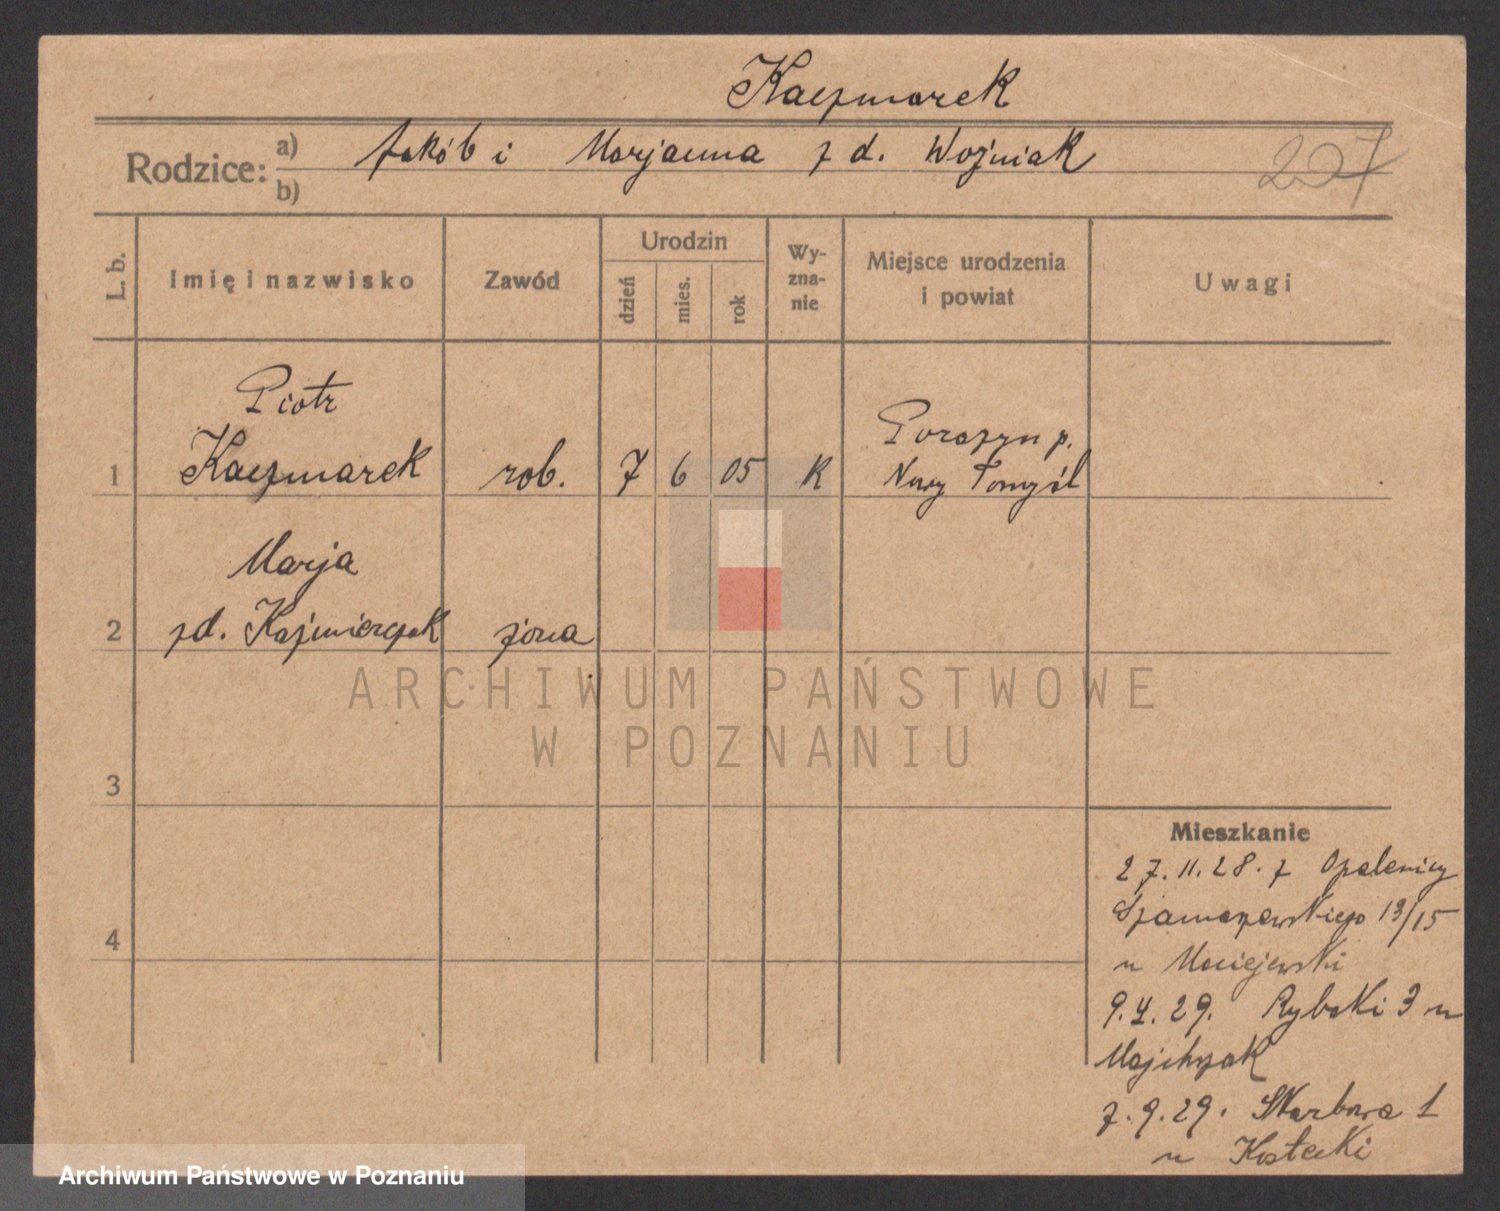 Kaczmarek
Rodzice: a) Jakób i Marjanna z d. Woźniak
b)
207
L. b.
Imię i nazwisko
Zawód
Urodzin
dzień
mies.
rok
Wy-
zna-
nie
Miejsce urodzenia
i powiat
Uwagi
1
Piotr
Kaczmarek
rob.
7
6
05
K
Porażyn p.
Nowy Tomyśl
2
Marja
z d. Kaźmierczak
żona
3
4
Mieszkanie
27.11.28. z Opalenicy
Szamarzewskiego 13/15
u Maciejewski
9.4.29. Rybaki 3 u
Majchrzak
7.9.29. Skarbowa 1
u Kostecki
ARCHIWUM PAŃSTWOWE
W POZNANIU
Archiwum Państwowe w Poznaniu